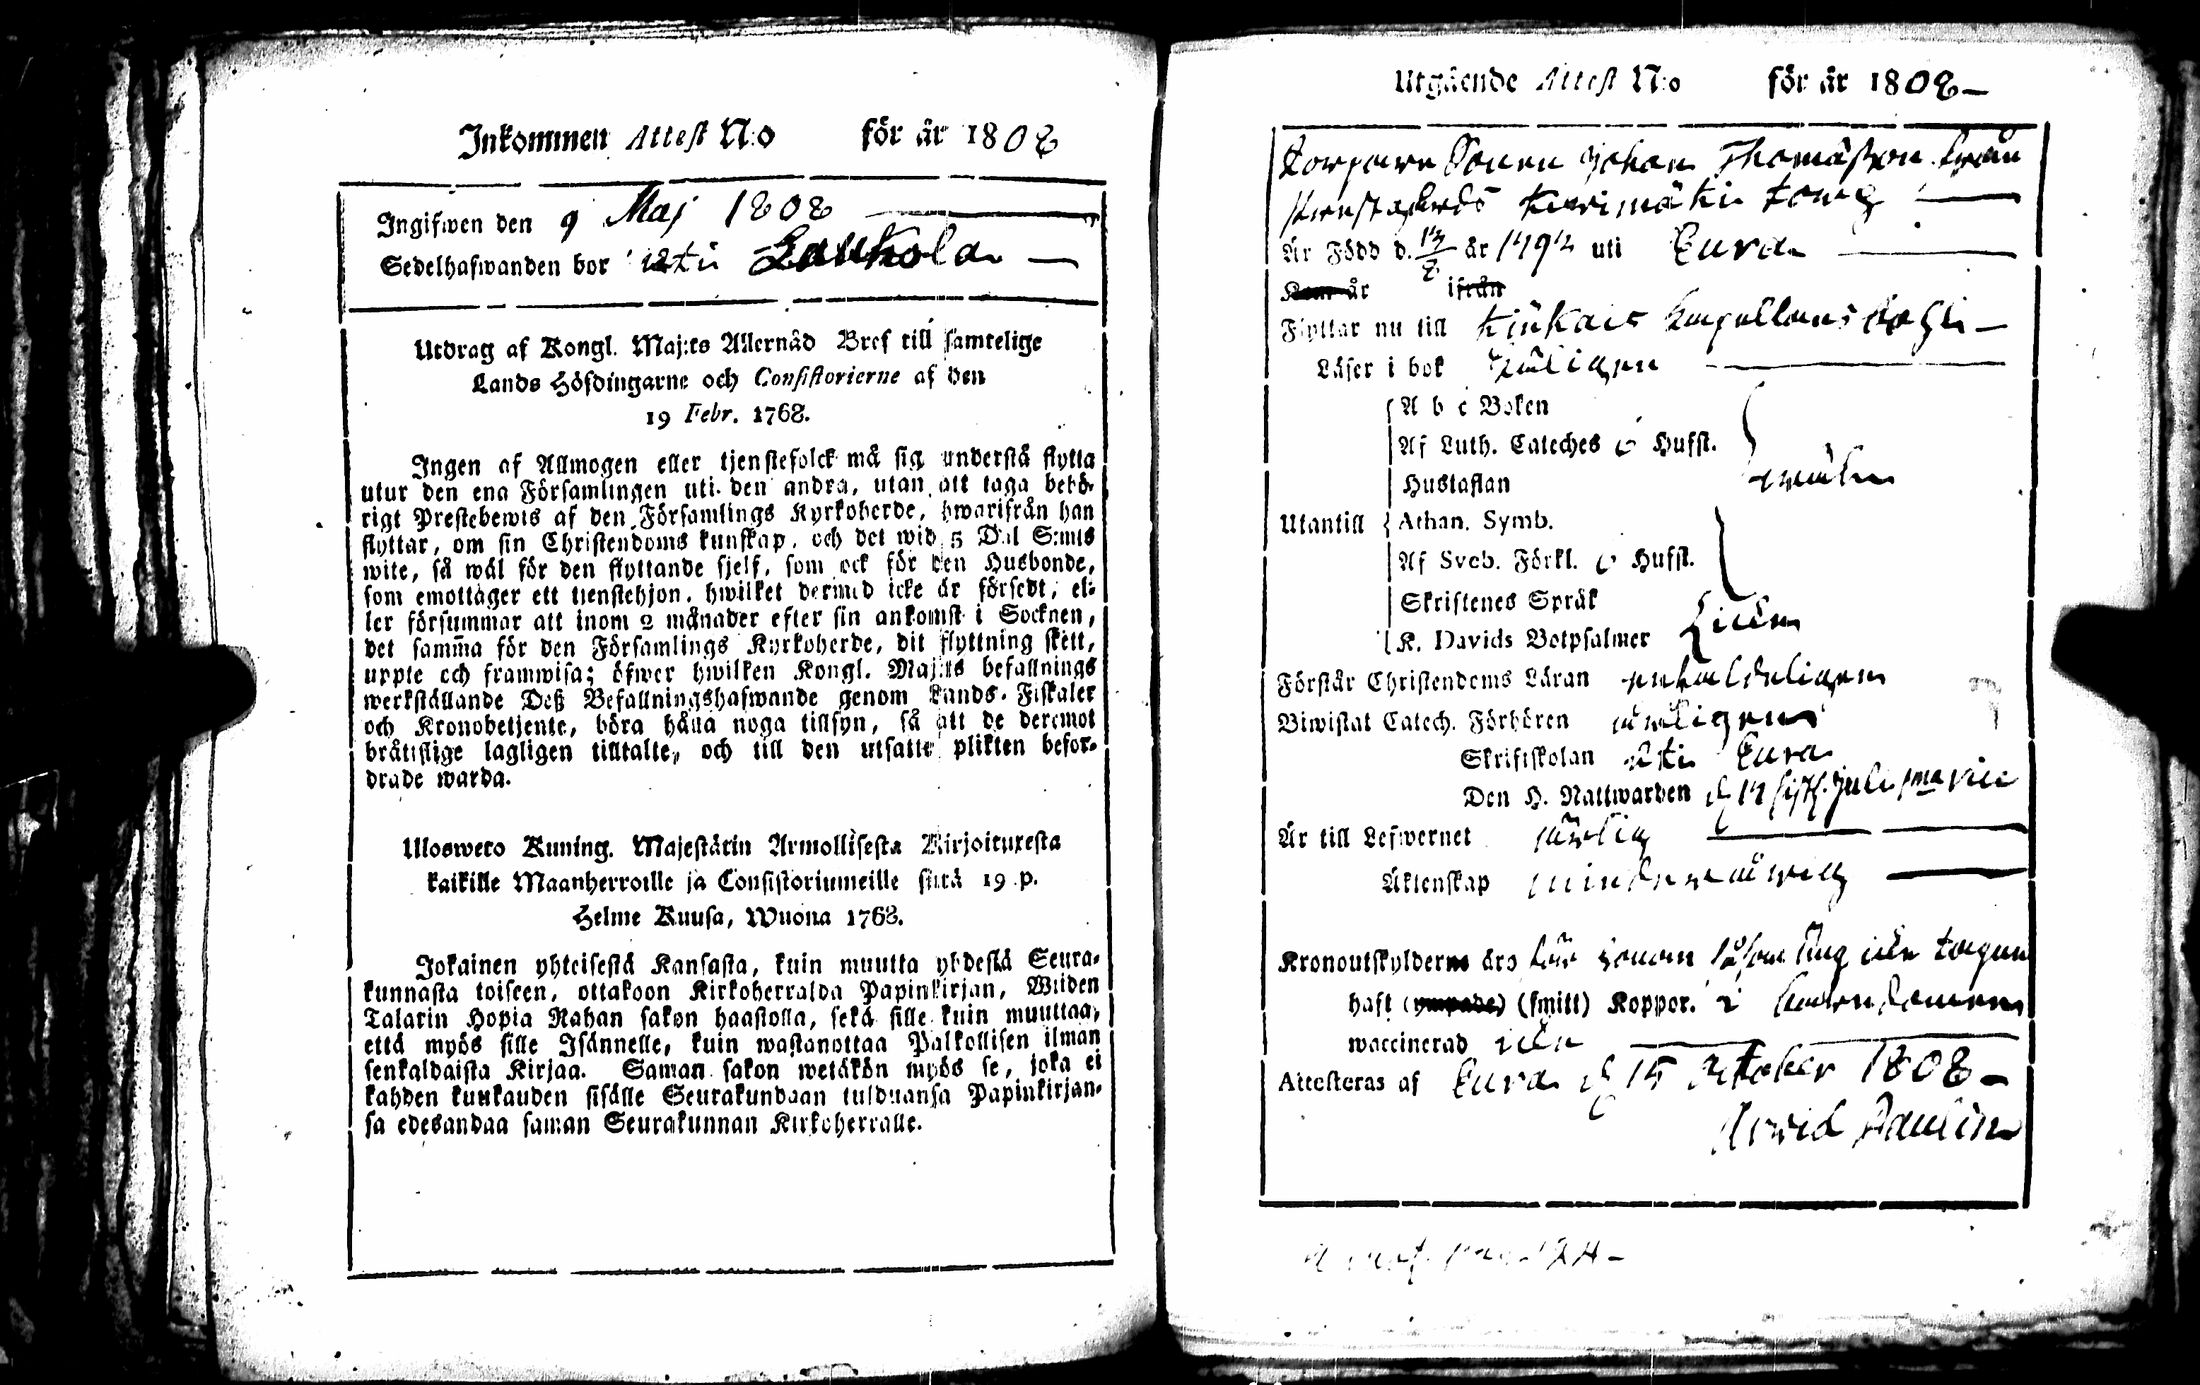 Inkommen Attest N:o för år 1808
Ingifwen den 9 Maj 1808
Sedelhafwanden bor uti Laukola
Utdrag af Kongl. Maj:ts Allernåd Bref till samtelige
Lands Höfdingarne och Consistorierne af den
19 Febr. 1768.
Ingen af Allmogen eller tjenstefolck må sig understå flytta
utur den ena Församlingen uti den andra, utan att taga behö-
rigt Prestebewis af den Församlings Kyrkoherde, hwarifrån han
flyttar, om sin Christendoms kunskap, och det wid 5 Dal S:mts
wite, så wäl för den flyttande sjelf, som ock för den Husbonde,
som emottager ett tienstehjon, hwilket dermed icke är försedt, el-
ler försummar att inom 2 månader efter sin ankomst i Socknen,
det samma för den Församlings Kyrkoherde, dit flyttning skett,
uppte och framwisa; öfwer hwilken Kongl. Maj:ts befallnings
werkställande Deß Befallningshafwande genom Lands-Fiskaler
och Kronobetjente, böra hålla noga tillsyn, så att de deremot
bråtislige lagligen tilltalte, och till den utsatte plikten befor-
drade warda.
Ulosweto Kuning. Majestätin Armollisesta Kirjoituxesta
kaikille Maanherroille ja Consistoriumeille siitä 19 p.
Helme Kuusa, Wuona 1768.
Jokainen yhteisestä Kansasta, kuin muutta yhdestä Seura-
kunnasta toiseen, ottakoon Kirkoherralda Papinkirjan, Wiiden
Talarin Hopia Rahan sakon haastolla, sekä sille kuin muuttaa,
että myös sille Isännelle, kuin wastanottaa Palkollisen ilman
senkaldaista Kirjaa. Saman sakon wetäkön myös se, joka ei
kahden kuukauden sisälle Seurakundaan tulduansa Papinkirjan-
sa edesandaa saman Seurakunnan Kirkoherralle.
Utgående Attest N:o för år 1808
Torpare Sonen Johan Thomasson från
Karimäki torp
Är Född d. 17/8 år 1792 uti Eura
Kom år ifrån
Flyttar nu till Kiukais Capellans
Läser i bok
A b c Boken
Af Luth. Cateches o Hufst.
Hustaflan
Utantill Athan. Symb.
Af Sveb. Förkl. o Hufst.
Skriftenes Språk
K. Davids Botpsalmer
Förstår Christendoms Läran enfaldeligen
Biwistat Catech. Förhören årligen
Skriftskolan uti Eura
Den H. Nattwarden d 17 Juli
Är till Lefwernet ärlig
Äktenskap minderårig
Kronoutskylderne års för honom såsom ung
haft (ympade) (smitt) Koppor. i barndomen
waccinerad
Attesteras af Eura d 15 October 1808
Arvid Paulin